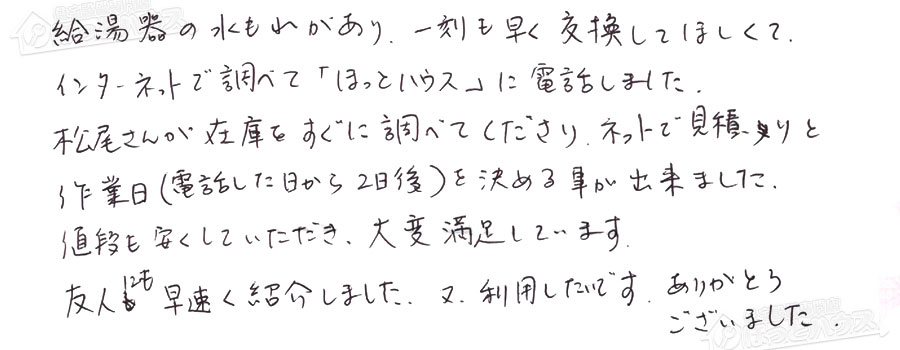 給湯器の水もれがあり、一刻も早く交換してほしくて、
インターネットで調べて「ほっとハウス」に電話しました。
松尾さんが在庫をすぐに調べてくださり、ネットで見積りと
作業日(電話した日から2日後)を決める事が出来ました。
値段も安くしていただき、大変満足しています。
友人にも早速く紹介しました。又、利用したいです。ありがとう
ございました。